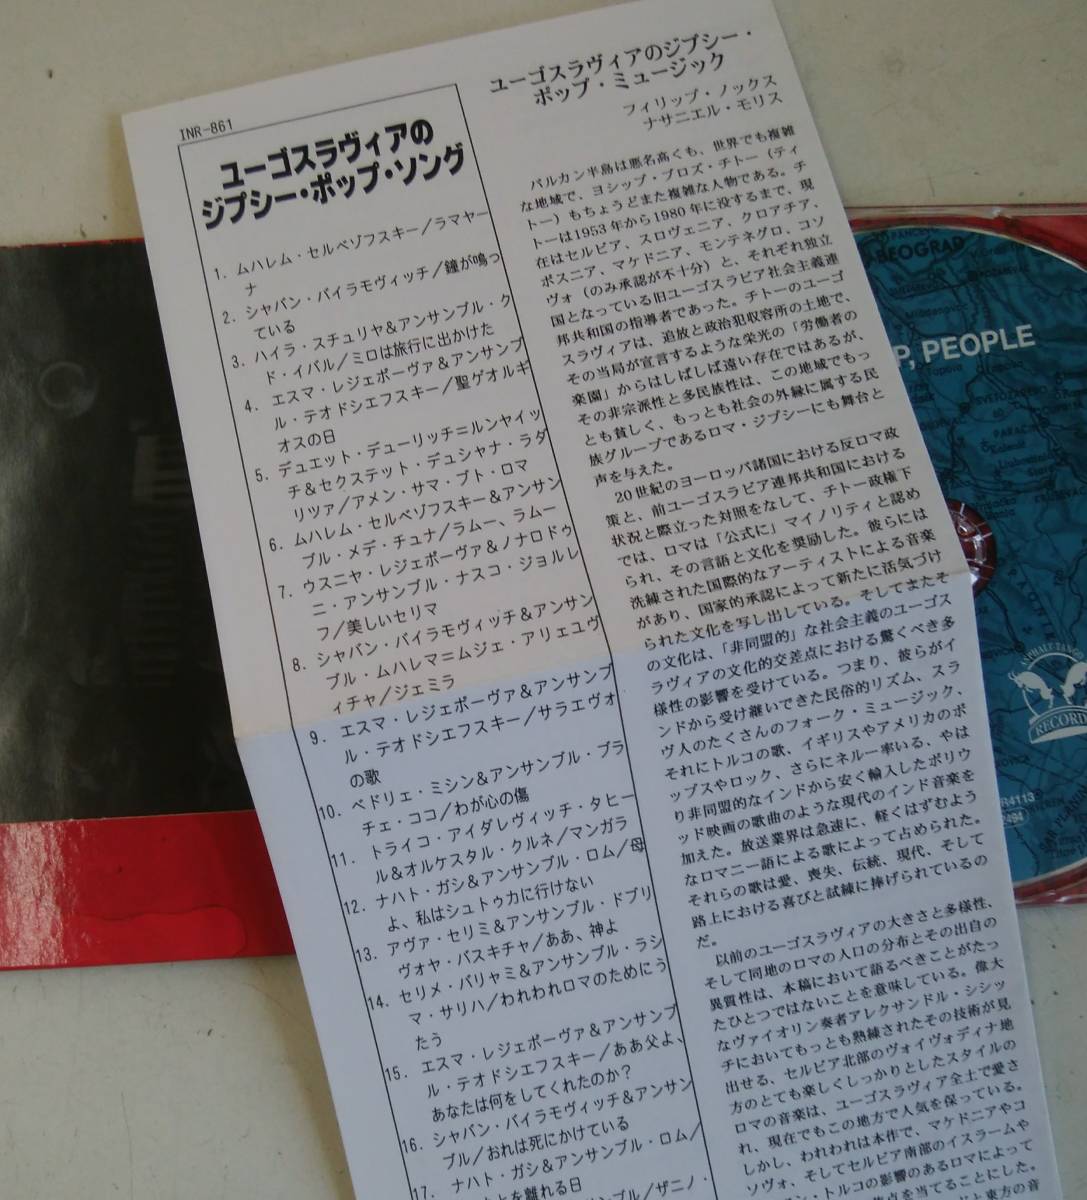 INR-861
ユーゴスラヴィアの
ジプシー・ポップ・ソング
1. ムハレム・セルベゾフスキー/ラマヤー
ナ
2. シャバン・バイラモヴィッチ/鐘が鳴っ
ている
3. ハイラ・スチュリヤ&アンサンブル・ク
ド・イバル/ミロは旅行に出かけた
4. エスマ・レジェポーヴァ&アンサンブ
ル・テオドシエフスキー/聖ゲオルギ
オスの日
5. デュエット・デューリッチ=ルンヤイッ
チ&セクステット・デュシャナ・ラダ
リツァ/アメン・サマ・プト・ロマ
6. ムハレム・セルベゾフスキー&アンサン
ブル・メデ・チュナ/ラムー、ラムー
7. ウスニヤ・レジェポーヴァ&ノナロドゥ
ニ・アンサンブル・ナスコ・ジョルレ
フ/美しいセリマ
8. シャバン・バイラモヴィッチ&アンサン
ブル・ムハレマ=ムジェ・アリェユヴ
ィチャ/ジェミラ
9. エスマ・レジェポーヴァ&アンサンブ
ル・テオドシエフスキー/サラエヴォ
の歌
10. ベドリェ・ミシン&アンサンブル・ブラ
チェ・ココ/わが心の傷
11. トライコ・アイダレヴィッチ・タヒー
ル&オルケスタル・クルネ/マンガラ
12. ナハト・ガシ&アンサンブル・ロム/母
よ、私はシュトゥカに行けない
13. アヴァ・セリミ&アンサンブル・ドブリ
ヴォヤ・バスキチャ/ああ、神よ
14. セリメ・バリャミ&アンサンブル・ラシ
マ・サリハ/われわれロマのためにう
たう
15. エスマ・レジェポーヴァ&アンサンブ
ル・テオドシエフスキー/ああ父よ、
あなたは何をしてくれたのか?
16. シャバン・バイラモヴィッチ&アンサン
ブル/おれは死にかけている
17. ナハト・ガシ&アンサンブル・ロム/
とを離れる日
ブル/ザニノ・
ユーゴスラヴィアのジプシー・
ポップ・ミュージック
フィリップ・ノックス
ナサニエル・モリス
バルカン半島は悪名高くも、世界でも複雑
な地域で、ヨシップ・ブロズ・チトー(ティ
トー)もちょうどまた複雑な人物である。チ
トーは1953年から1980年に没するまで、現
在はセルビア、スロヴェニア、クロアチア、
ボスニア、マケドニア、モンテネグロ、コソ
ヴォ(のみ承認が不十分)と、それぞれ独立
国となっている旧ユーゴスラビア社会主義連
邦共和国の指導者であった。チトーのユーゴ
スラヴィアは、追放と政治犯収容所の土地で、
その当局が宣言するような栄光の「労働者の
楽園」からはしばしば遠い存在ではあるが、
その非宗派性と多民族性は、この地域でもっ
とも貧しく、もっとも社会の外縁に属する民
族グループであるロマ・ジプシーにも舞台と
声を与えた。
20世紀のヨーロッパ諸国における反ロマ政
策と、前ユーゴスラビア連邦共和国における
状況と際立った対照をなして、チトー政権下
では、ロマは「公式に」マイノリティと認め
られ、その言語と文化を奨励した。彼らには
洗練された国際的なアーティストによる音楽
があり、国家的承認によって新たに活気づけ
られた文化を写し出している。そしてまたそ
の文化は、「非同盟的」な社会主義のユーゴス
ラヴィアの文化的交差点における驚くべき多
様性の影響を受けている。つまり、彼らがイ
ンドから受け継いできた民俗的リズム、スラ
ヴ人のたくさんのフォーク・ミュージック、
それにトルコの歌、イギリスやアメリカのポ
ップスやロック、さらにネルー率いる、やは
り非同盟的なインドから安く輸入したボリウ
ッド映画の歌曲のような現代のインド音楽を
加えた。放送業界は急速に、軽くはずむよう
なロマニー語による歌によって占められた。
それらの歌は愛、喪失、伝統、現代、そして
路上における喜びと試練に捧げられているの
だ。
以前のユーゴスラヴィアの大きさと多様性、
そして同地のロマの人口の分布とその出自の
異質性は、本稿において語るべきことがたっ
たひとつではないことを意味している。偉大
なヴァイオリン奏者アレクサンドル・シシッ
チにおいてもっとも熟練されたその技術が見
出せる、セルビア北部のヴォイヴォディナ地
方のとても楽しくしっかりとしたスタイルの
ロマの音楽は、ユーゴスラヴィア全土で愛さ
れ、現在でもこの地方で人気を保っている。
しかし、われわれは本作で、マケドニアやコ
ソヴォ、そしてセルビア南部のイスラームや
ン・トルコの影響のあるロマによって
点を当てることにした。
東方の音
BEOGRAD
P, PEOPLE
ASPHALT TANGO
RECORDS